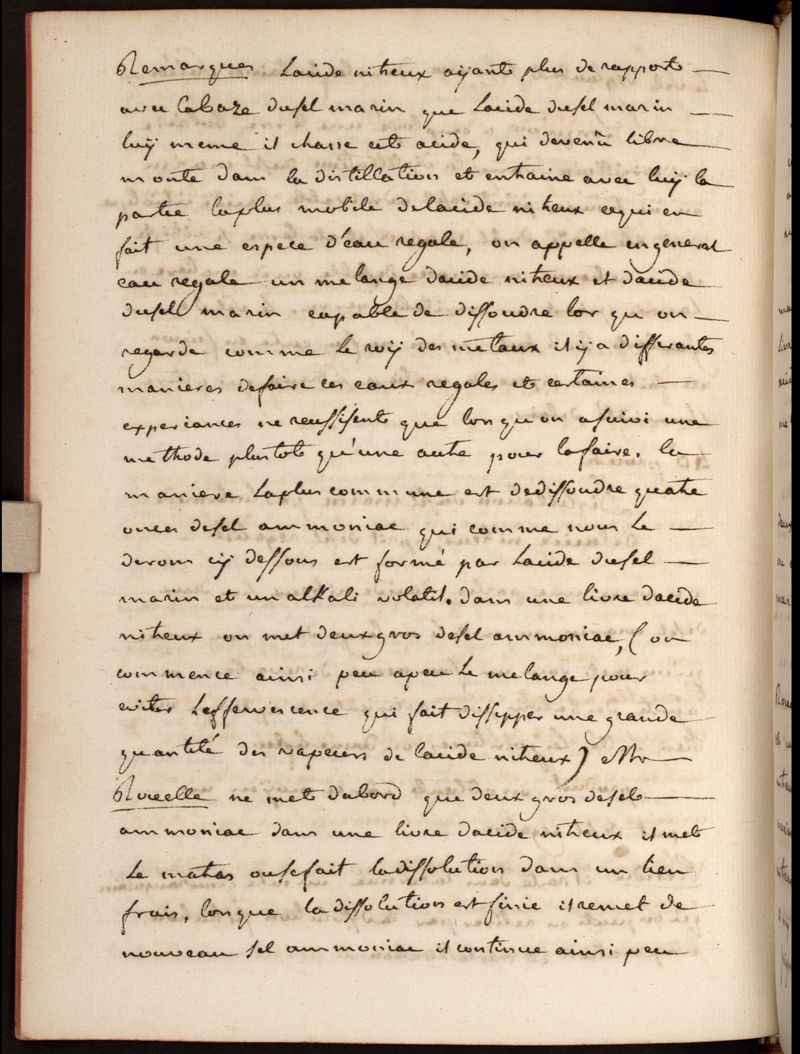 Remarques Lacide nitreux ayant plus de rapports
avec la baze du sel marin que Lacide du sel marin
luÿ meme il chasse cet acide, qui devenu libre
monte dans la distillation et entraine avec luÿ la
partie la plus mobile de lacide nitreux cequi en
fait une espece d'eau regale, on appelle en general
eau regale un melange dacide nitreux et dacide
du sel marin capable de dissoudre lor qu on
regarde comme Le roÿ des métaux il y a differantes
manieres de faire ces eaux regales et certaines
experiances ne reussissent que lors qu on a suivi une
methode plustot qu'une autre pour la faire. la
maniere La plus commune est de dissoudre quatre
onces de sel ammoniac qui comme nous Le
dirons cÿ dessous est formé par Lacide du sel
marin et un alkali volatil. dans une livre dacide
nitreux on met deux gros de sel ammoniac, (on
commence ainsi peu a peu Le melange pour
eviter Leffervescence qui fait dissipper une grande
quantité des vapeurs de lacide nitreux) Mr
Rouelle ne met dabord que deux gros de sel
ammoniac dans une livre dacide nitreux il met
Le matras ou se fait la dissolution dans un lieu
frais, lorsque la dissolution est finie il remet de
nouveau sel ammoniac il continue ainsi peu